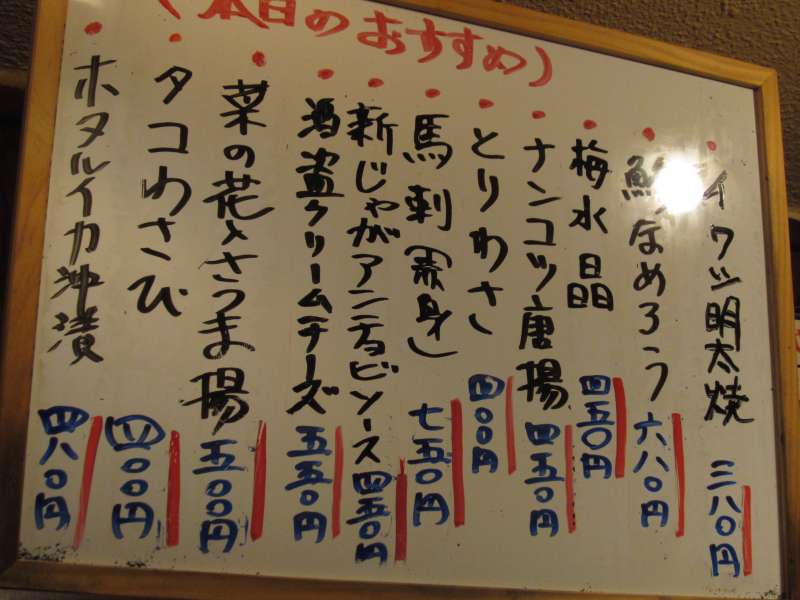 (本日のおすすめ)
イワシ明太焼 三八〇円
鯵なめろう 六八〇円
梅水晶 四五〇円
ナンコツ唐揚 四五〇円
とりわさ 四〇〇円
馬刺(赤身) 七五〇円
新じゃがアンチョビソース 四五〇円
酒盗クリームチーズ 五五〇円
菜の花とさつま揚 五〇〇円
タコわさび 四〇〇円
ホタルイカ沖漬 四八〇円